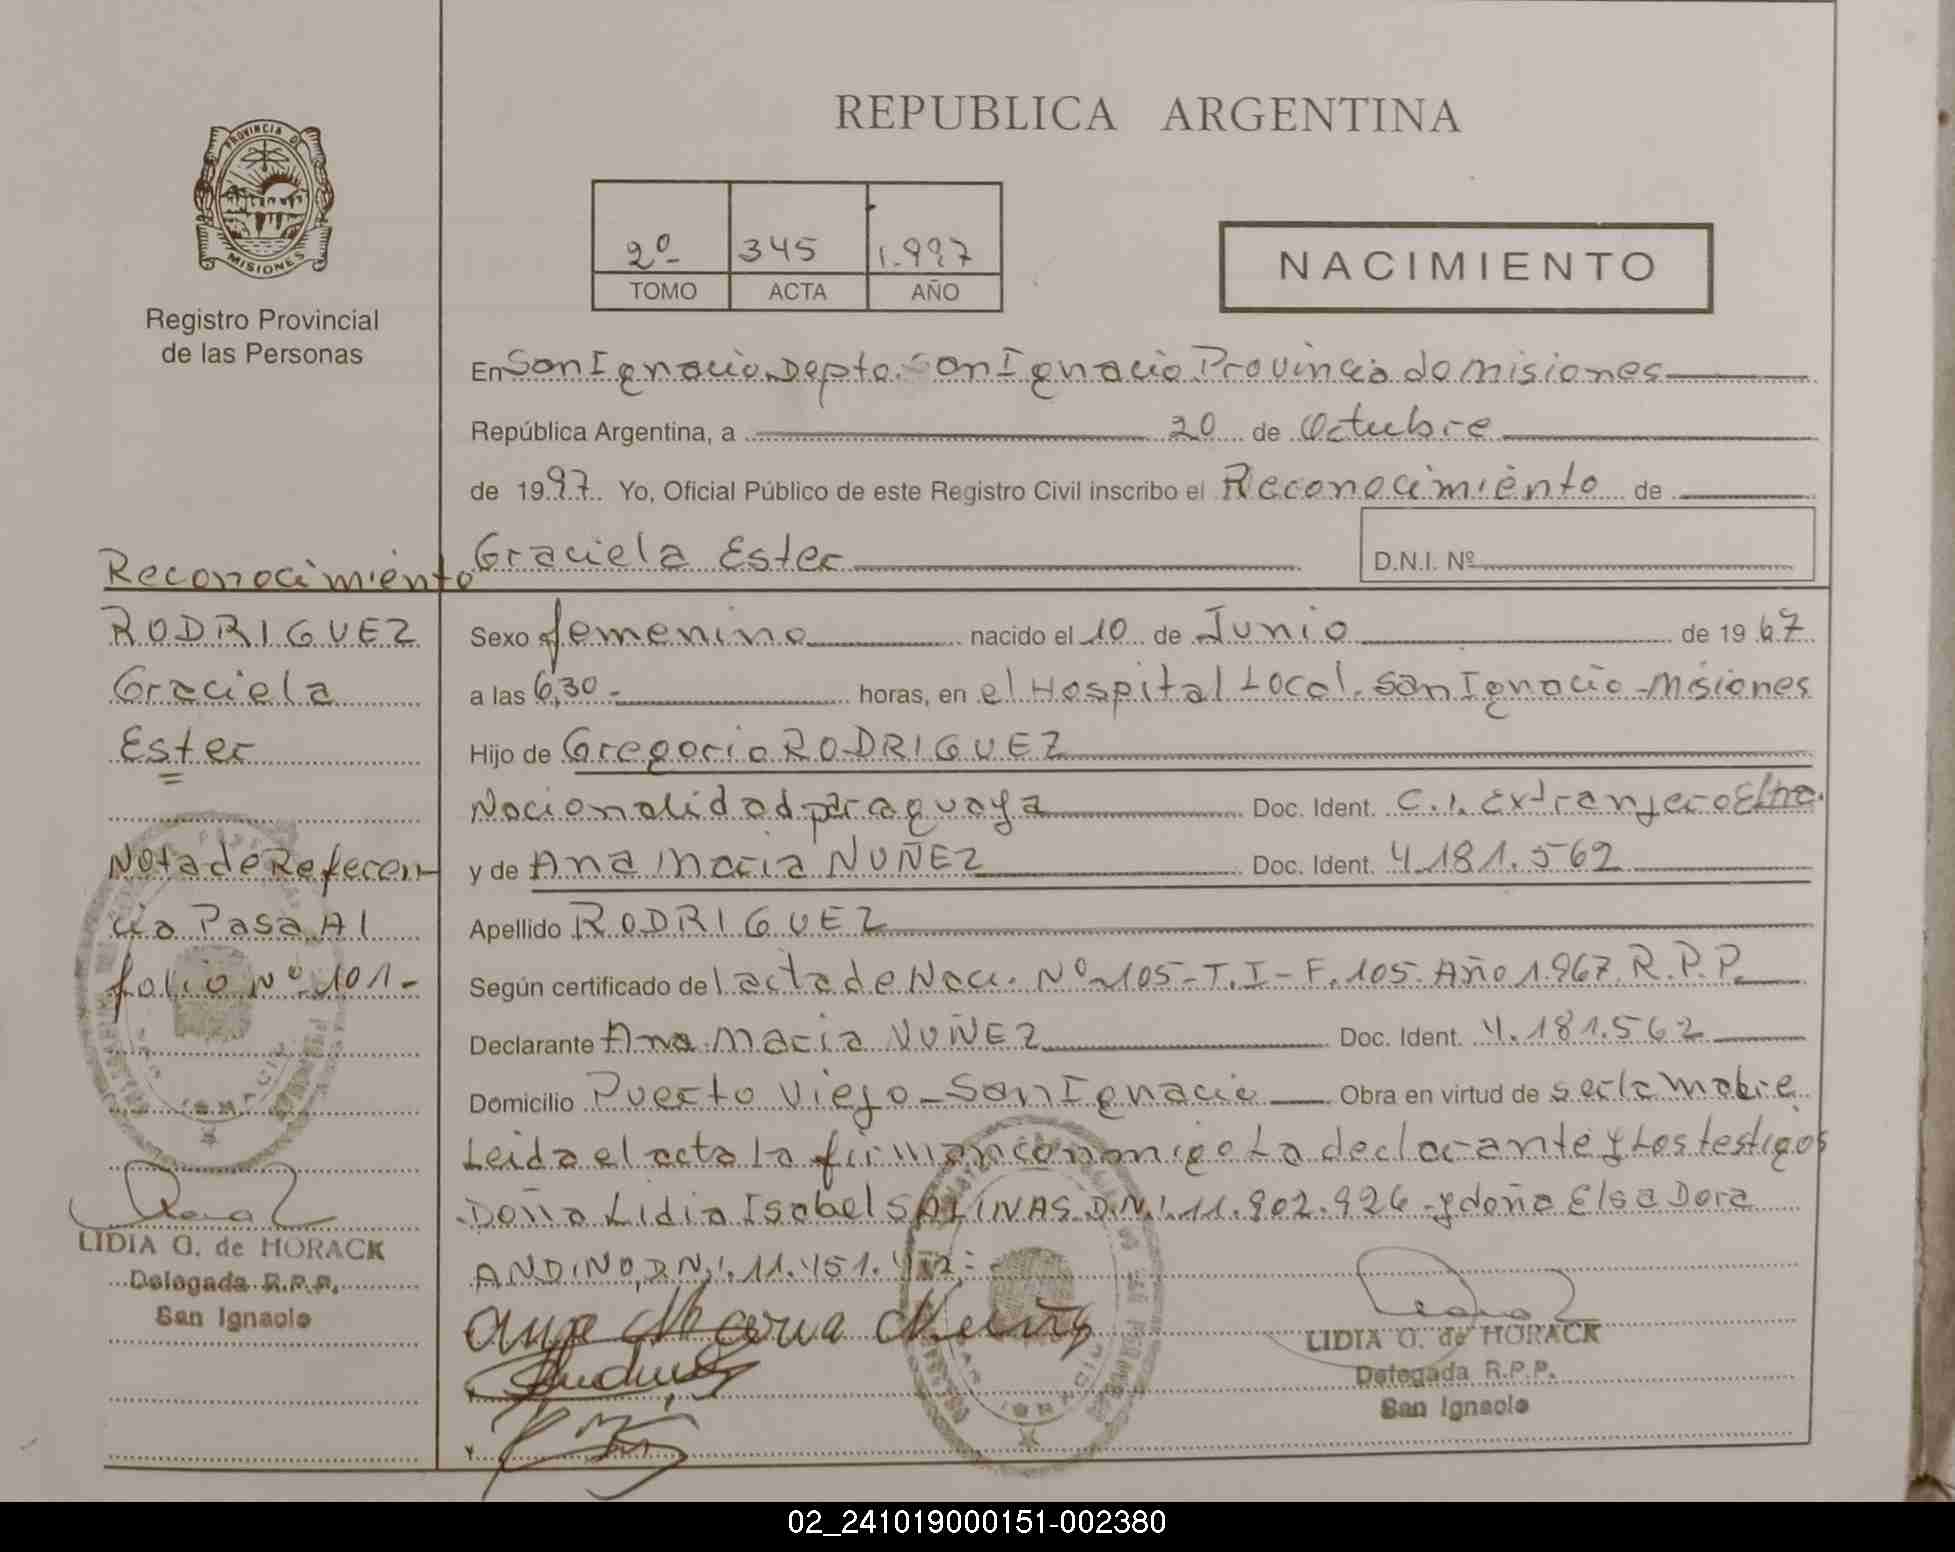 REPUBLICA ARGENTINA
PROVINCIA DE
MISIONES
Registro Provincial
de las Personas
2º 345 1.997
TOMO ACTA AÑO
NACIMIENTO
En San Ignacio Depto. San Ignacio Provincia de Misiones
República Argentina, a 20 de Octubre
de 1997. Yo, Oficial Público de este Registro Civil inscribo el Reconocimiento de
Graciela Ester
D.N.I. Nº
Reconocimiento
RODRIGUEZ
Graciela
Ester
Nota de Referen-
cia Pasa Al
folio Nº 101-
LIDIA G. de HORACK
Delegada R.P.P.
San Ignacio
Sexo femenino nacido el 10 de Junio de 1967
a las 6,30- horas, en el Hospital Local. San Ignacio-Misiones
Hijo de Gregorio RODRIGUEZ
Nacionalidad paraguaya Doc. Ident. C.I. Extranjero
y de Ana Maria NUÑEZ Doc. Ident. 4.181.562
Apellido RODRIGUEZ
Según certificado de l acta de Naci. Nº 105-T.I-F.105. Año 1.967. R.P.P.
Declarante Ana Maria NUÑEZ Doc. Ident. 4.181.562
Domicilio Puerto Viejo-San Ignacio Obra en virtud de ser la Madre.
Leida el acta la firman conmigo La declarante y Los testigos
Doña Lidia Isabel SALINAS D.N.I. 11.902.926-y doña Elsa Dora
ANDINO, D.N.I. 11.451.
LIDIA G. de HORACK
Delegada R.P.P.
San Ignacio
02_241019000151-002380